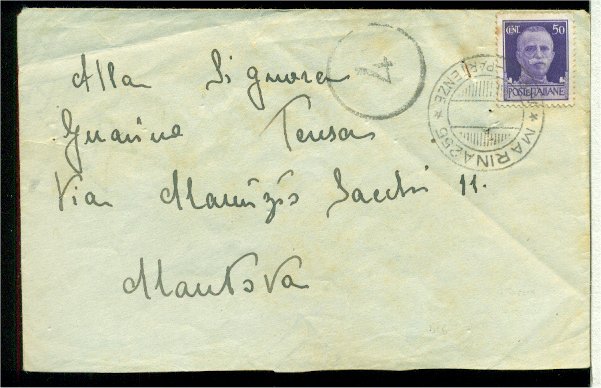 Alla Signora
Guarina Teresa
Via Maurizio Sacchi 11.
Mantova
4
CENT. 50
POSTE ITALIANE
PARTENZE * MARINA 255 *